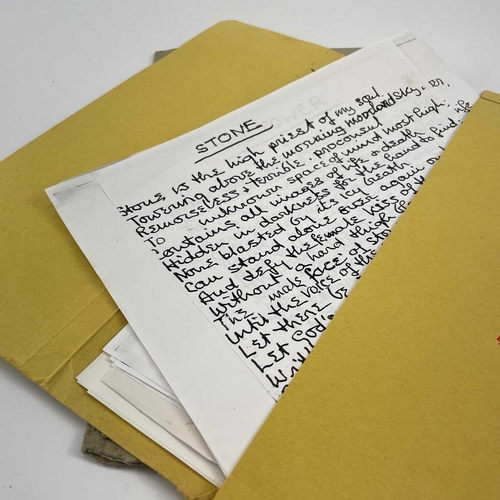 STONE
Stone is the high priest of my soul
Towering above the morning moorland sky
Remorseless & terrible. proconsul
To unknown space of mind most high.
Contains all images of life & death
Hidden in darkness for the hand to find.
None blasted by its icy breath
Can stand alone ever again
And defy the female kiss of
Without a hard
The male force of
Until the voice of the
Let there be
Let God's